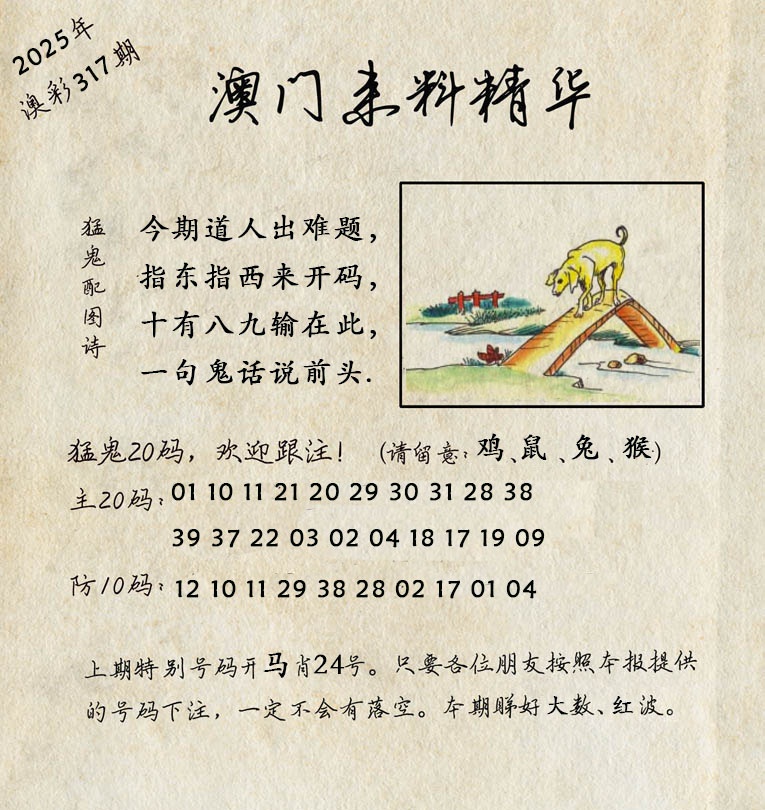 2025年
澳彩317期
澳门来料精华
猛鬼配图诗
今期道人出难题，
指东指西来开码，
十有八九输在此，
一句鬼话说前头.
猛鬼20码，欢迎跟注！ (请留意：鸡、鼠、兔、猴)
主20码：01 10 11 21 20 29 30 31 28 38
39 37 22 03 02 04 18 17 19 09
防10码：12 10 11 29 38 28 02 17 01 04
上期特别号码开马肖24号。只要各位朋友按照本报提供
的号码下注，一定不会有落空。本期睇好大数、红波。